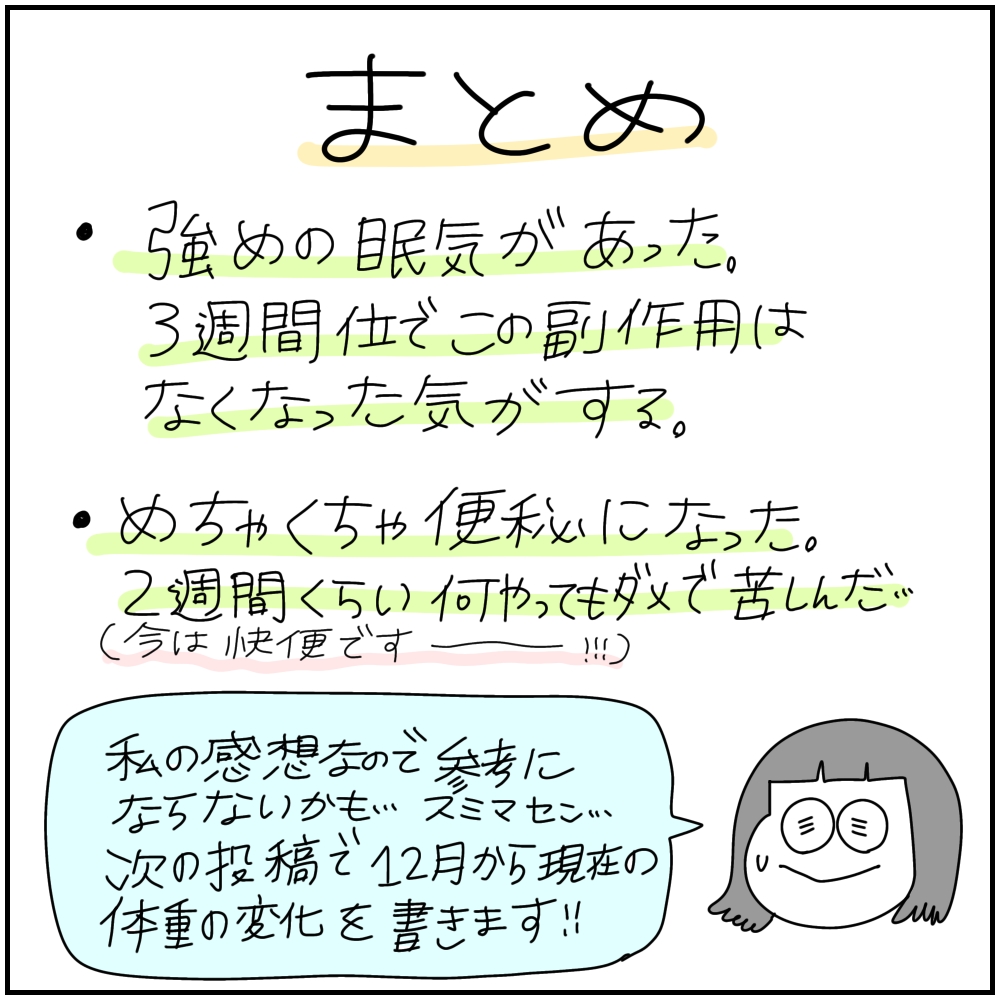 まとめ
・強めの眠気があった。
3週間位でこの副作用は
なくなった気がする。
・めちゃくちゃ便秘になった。
2週間くらい何やってもダメで苦しんだ…
(今は快便です――!!!)
私の感想なので参考に
ならないかも… スミマセン…
次の投稿で12月から現在の
体重の変化を書きます!!